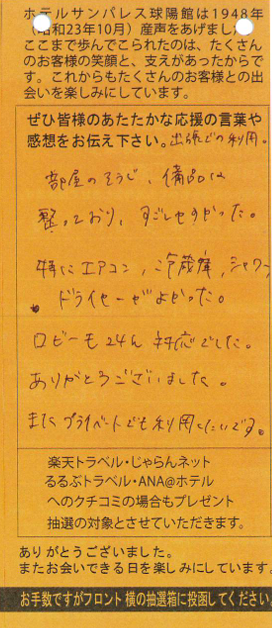 ホテルサンパレス球陽館は1948年
(昭和23年10月)産声をあげました
ここまで歩んでこられたのは、たくさん
のお客様の笑顔と、支えがあったからで
す。これからもたくさんのお客様との出
会いを楽しみにしています。
ぜひ皆様のあたたかな応援の言葉や
感想をお伝え下さい。出張での利用。
部屋のそうじ、備品は
整っており、すごしやすかった。
特にエアコン、冷蔵庫、シャワー
ドライヤーがよかった。
ロビーも24h対応でした。
ありがとうございました。
またプライベートでも利用したいです。
楽天トラベル・じゃらんネット
るるぶトラベル・ANA@ホテル
へのクチコミの場合もプレゼント
抽選の対象とさせていただきます。
ありがとうございました。
またお会いできる日を楽しみにしています。
お手数ですがフロント横の抽選箱に投函してください。